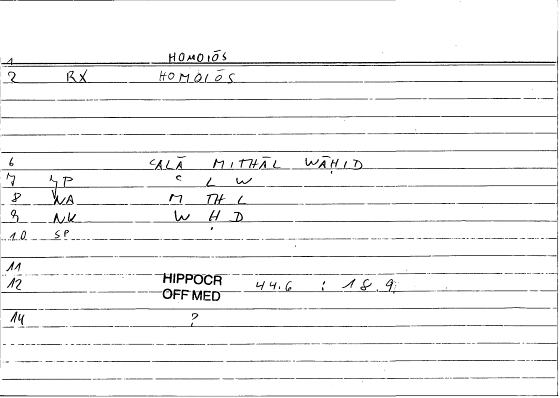 1 HOMOIŌS
2 RX HOMOIŌS
6 ʿALĀ MITHĀL WĀḤID
7 SP ʿ L W
8 NA M TH L
9 NK W Ḥ D
10 SP
11
12 HIPPOCR OFF MED 44.6 : 18.9
14 ?